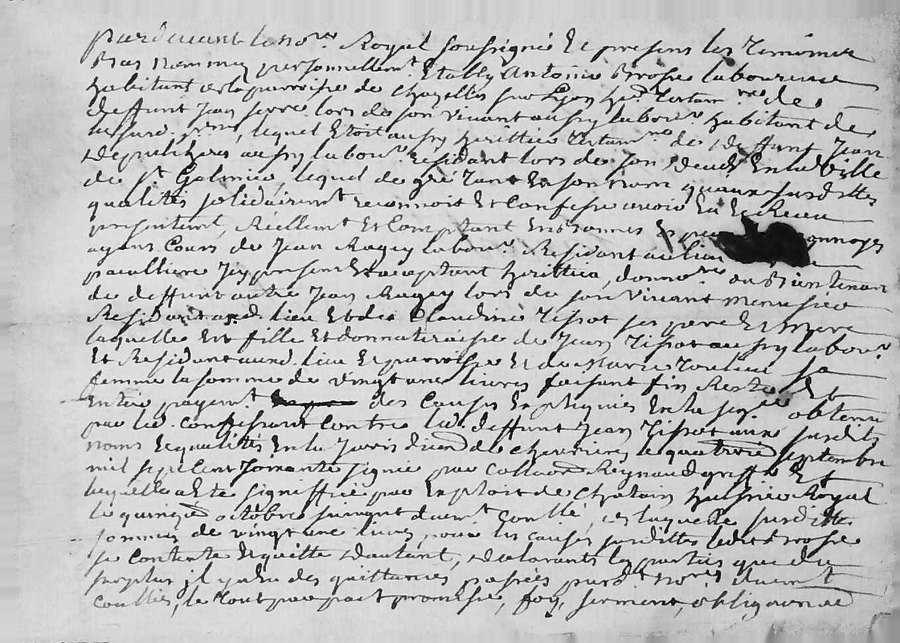 pardevant le no.re Royal soussigné et presens les temoins
bas nommez personnellem.t Etably Antoine Brosse laboureur
habitant de la parroisse de Chazelles sur Lyon
deffunt Jean serre lors de son vivant aussy labour.r habitant de
lequel Etoit aussy heritier testam.re de deffunt Jean
aussy labour.r residant lors de son deceds En la Ville
de S.t Galmier, lequel de gré tant En son nom qu'aux susdittes
qualités solidairem.t reconnoit et Confesse avoir Eu et Receu
presentem.t, Réellem.t Et Comptant En bonnes Espe onnoyes
ayans Cours de Jean Ragey labour.r Residant au lieu
Jcy present Et acceptant heritier, donna.re ou Bientenant
de deffunt autre Jean Ragey lors de son vivant menusier
Residant aud. lieu Et de Claudine Tissot ses pere Et mere
laquelle Est fille Et donnatairesse de Jean Tissot aussy labour.r
Et Residant aud. lieu Et parroisse Et de Marie sa
femme la somme de vingt une livres faisant fin Reste Et
Entier payem.t des Causes Expliquées En la obtenu
par led. Confessant Contre led. deffunt Jean Tissot aux susdits
noms Et qualités En la Jurisdiction de Chevrieres le quatrieme septembre
mil sept cent soixante signée par Collaon Reynaud greffier Et
laquelle a Eté signiffiée par Exploit de Chatain huissier Royal
le quinzie octobre suivant duem.t Conllé, de laquelle susditte
somme de vingt une livres, pour les causes susdittes ledit Brosse
se Contente Et quitte d'autant, declarants les parties que du
surplus il y a Eu des quittances passées pard.t no.res duem.t
Conllées, le tout par pait promesse, foy, serment, obligaon de